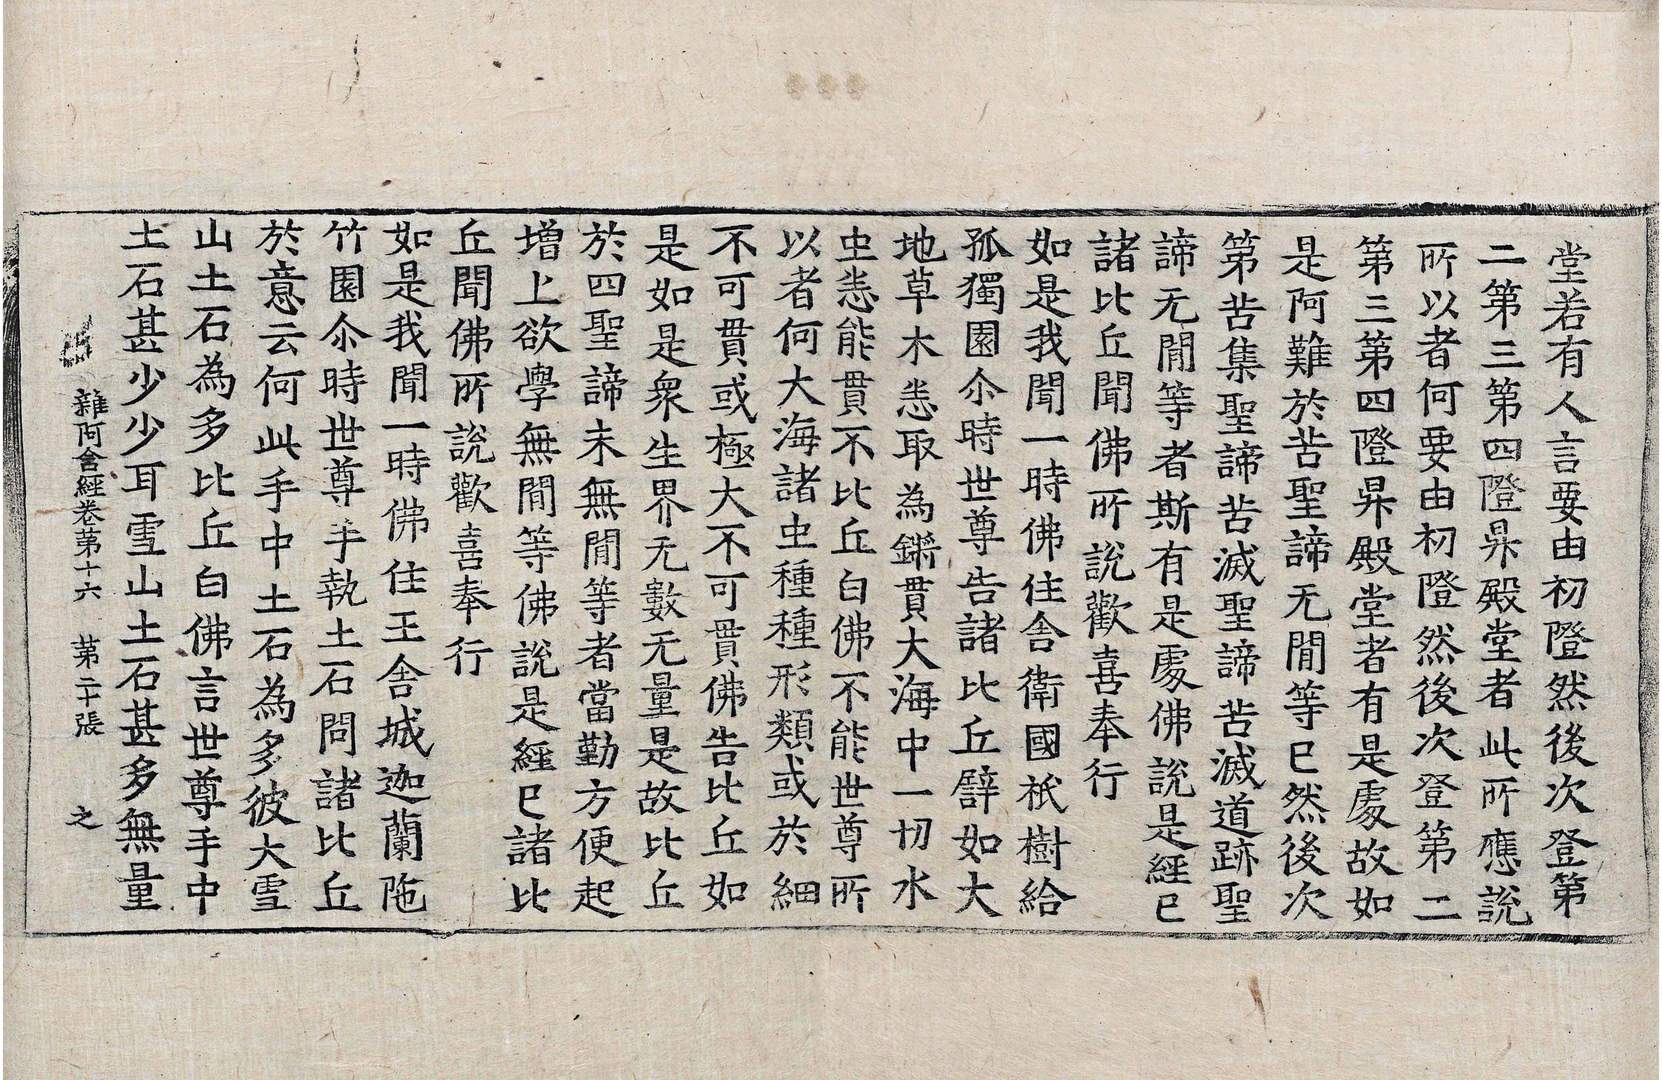 堂若有人言要由初隥然後次登第
二第三第四隥昇殿堂者此所應說
所以者何要由初隥然後次登第二
第三第四隥昇殿堂者有是處故如
是阿難於苦聖諦无閒等已然後次
第苦集聖諦苦滅聖諦苦滅道跡聖
諦无閒等者斯有是處佛說是經已
諸比丘聞佛所說歡喜奉行
如是我聞一時佛住舍衛國祇樹給
孤獨園尒時世尊告諸比丘譬如大
地草木悉取為鏘貫大海中一切水
虫悉能貫不比丘白佛不能世尊所
以者何大海諸虫種種形類或於細
不可貫或極大不可貫佛告比丘如
是如是衆生界无數无量是故比丘
於四聖諦未無閒等者當勤方便起
增上欲學無閒等佛說是經已諸比
丘聞佛所說歡喜奉行
如是我聞一時佛住王舍城迦蘭陁
竹園尒時世尊手執土石問諸比丘
於意云何此手中土石為多彼大雪
山土石為多比丘白佛言世尊手中
土石甚少少耳雪山土石甚多無量
雜阿含經卷第十六 第二十張 之